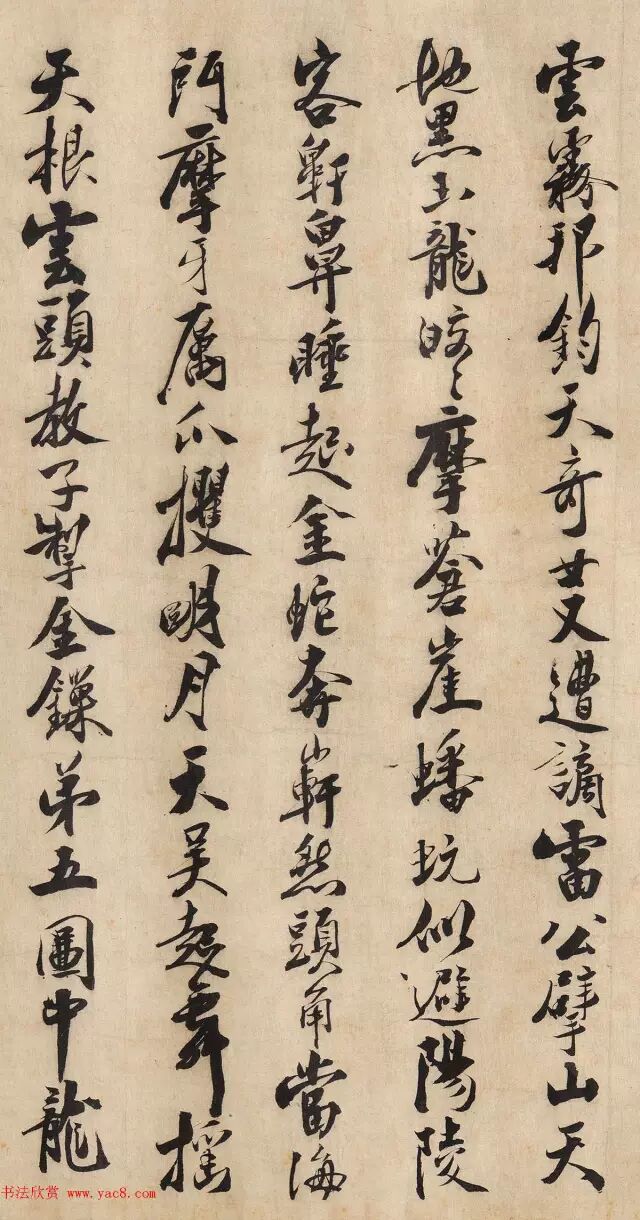 雲霧邪鈞天奇女又遭謫雷公擘山天
地黑玉龍皎〻摩蒼崖蟠坑似避陽陵
客鼾鼻睡起金蛇奔軒然頭角當海
門摩牙厲爪攫明月天吳起舞搖
天根雲頭教子掣金鏁第五圖中龍
书法欣赏 www.yac8.com